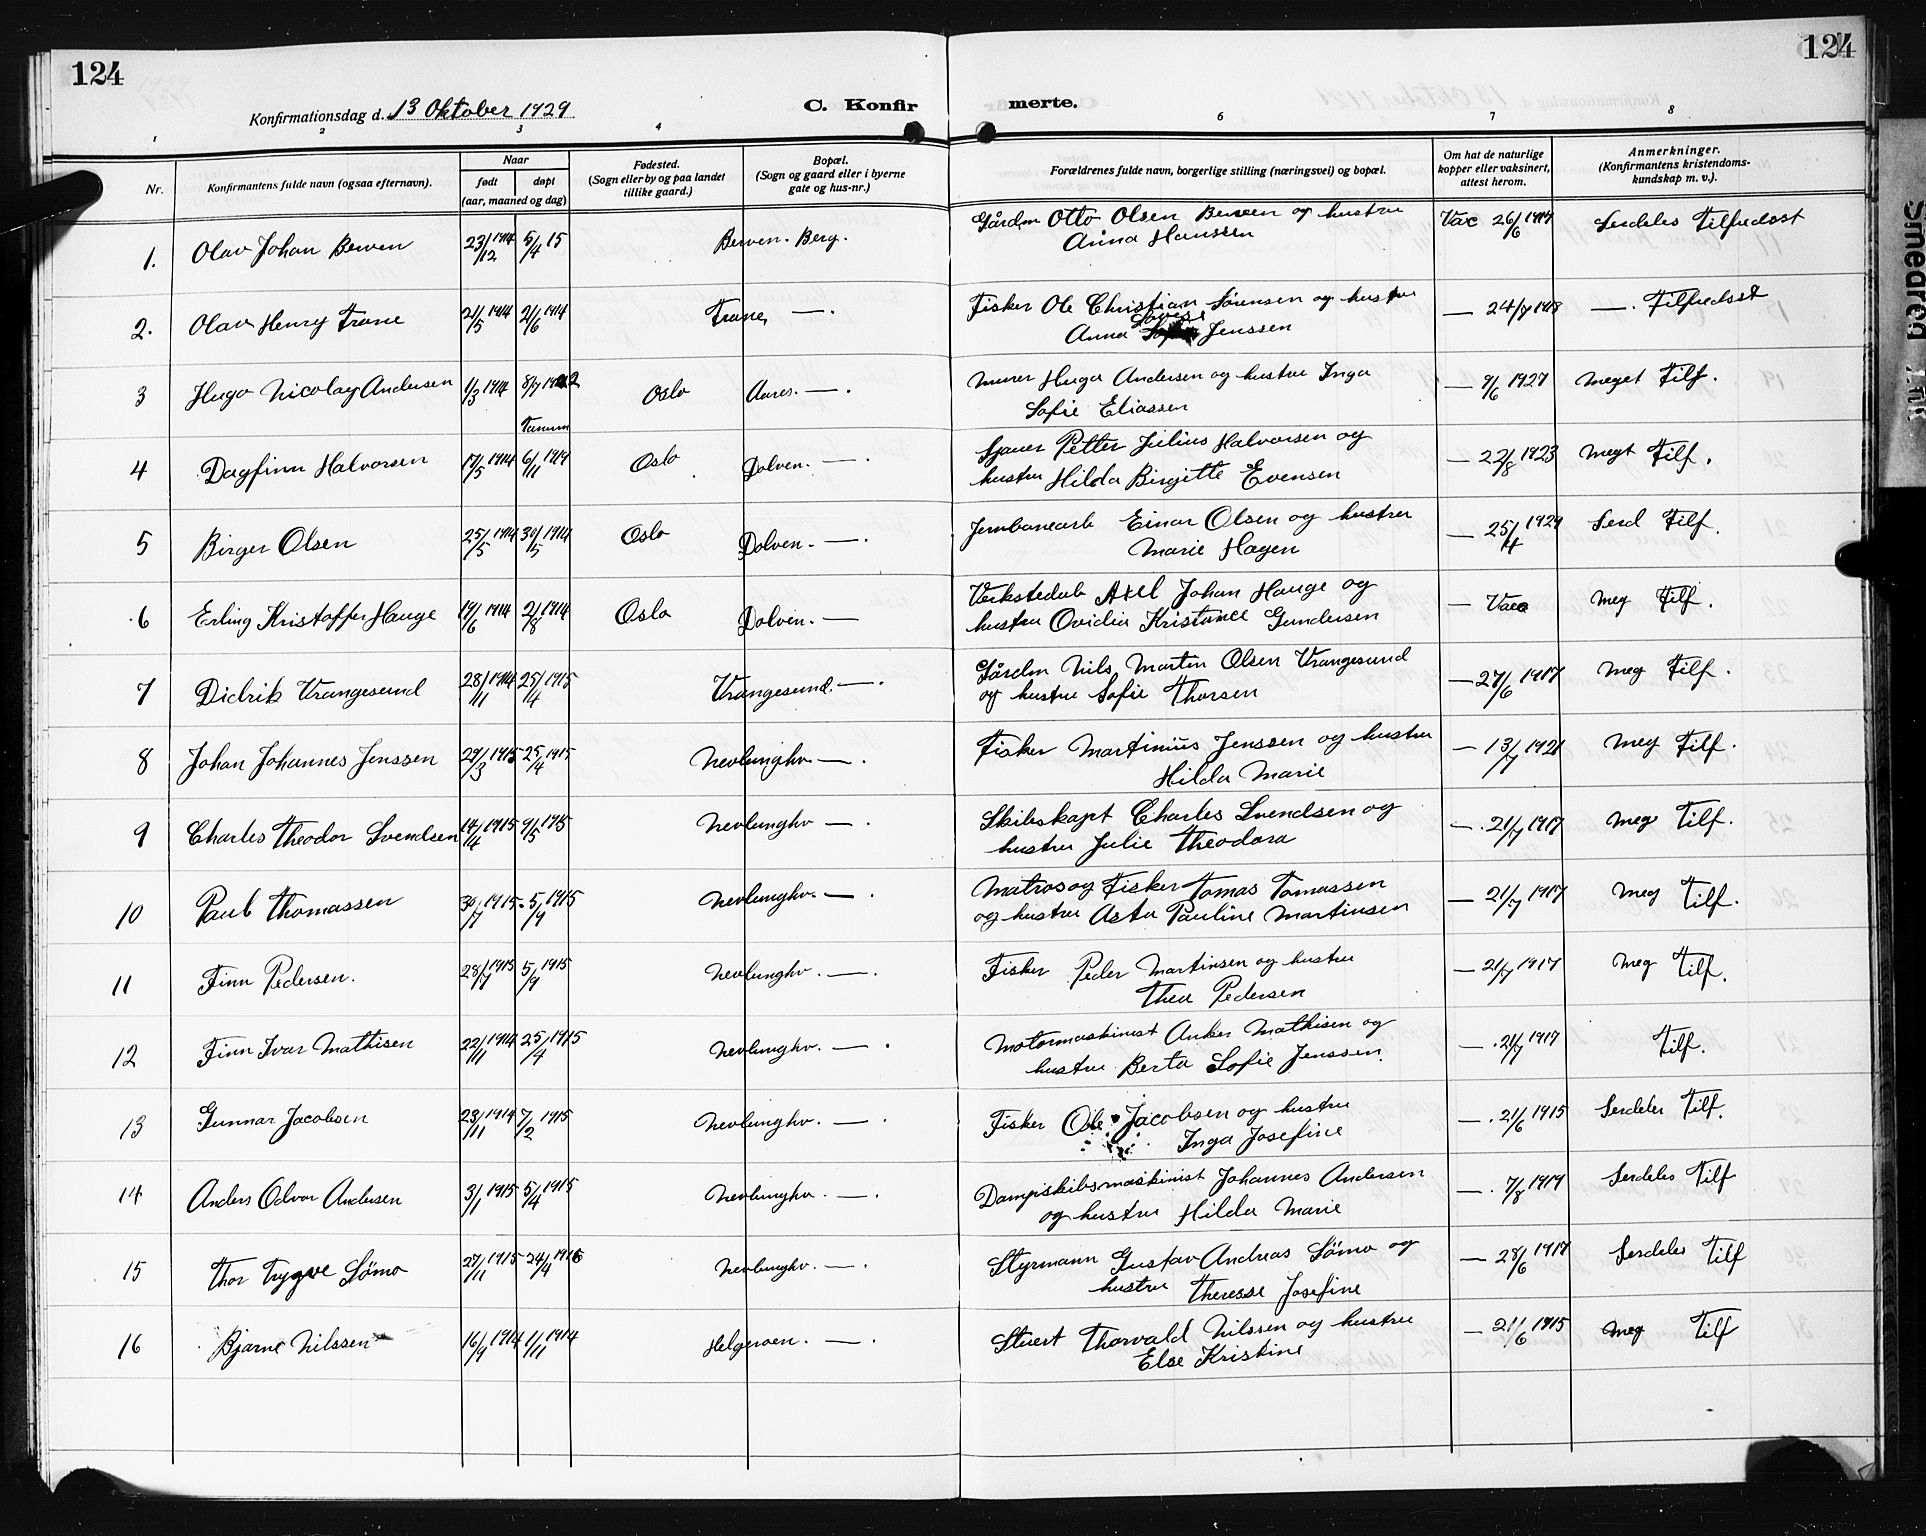 124
124
Konfirmationsdag d. 13 Oktober 1929
C. Konfirmerte.
1 2 3 4 6 7 8
Nr.
Konfirmantens fulde navn (ogsaa efternavn).
Naar
født døpt
(aar, maaned og dag)
Fødested.
(Sogn eller by og paa landet
tillike gaard.)
Bopæl.
(Sogn og gaard eller i byerne
gate og hus-nr.)
Forældrenes fulde navn, borgerlige stilling (næringsvei) og bopæl.
Om hat de naturlige
kopper eller vaksinert,
attest herom.
Anmerkninger.
(Konfirmantens kristendoms-
kundskap m. v.).
1. Olav Johan Berven 23/12 1914 5/4 15 Berven. Berg. Gårdm Otto Olsen Berven og hustru Vac 26/6 1917 Serdeles Tilfredsst
Anna Hanssen
2. Olav Henry Trane 21/5 1914 21/6 1914 Trane, — . Fisker Ole Christian Sørensen og hustru — 24/7 1918 — . Tilfredsst
Anna Lovise Jenssen
3 Hugo Nicolay Andersen 1/3 1914 8/7 Oslo Aares. — . Murer Hugo Andersen og hustru Inga — 9/6 1927 Meget Tilf.
Tanum
Sofie Eliassen
4 Dagfinn Halvorsen 17/5 1914 6/11 1919 Oslo Dolven. — . Sjauer Petter Julius Halvorsen og — 22/8 1923 Megt Tilf.
hustru Hilda Birgitte Evensen
5 Birger Olsen 25/5 1914 30/5 1914 Oslo Dolven. — . Jernbanearb Einar Olsen og hustru — 25/4 1929 Serd Tilf.
Marie Hagen
6 Erling Kristoffer Hauge 19/6 1914 2/8 1914 Oslo Dolven. — Verkstedarb Axel Johan Hauge og — Vac Meg Tilf.
hustru Ovidia Kristance Gundersen
7 Didrik Vrangesund 28/11 1914 25/4 1915 Vrangesund. — . Gårdm Nils Martin Olsen Vrangesund — 27/6 1917 Meg Tilf.
og hustru Sofie Thorsen
8 Johan Johannes Jenssen 29/3 1915 25/4 1915 Nevlunghv. — . Fisker Martinius Jenssen og hustru — 13/7 1921 Meg Tilf.
Hilda Marie
9 Charles Theodor Svendsen 14/4 1915 9/5 1915 Nevlunghv — . Skibskapt Charles Svendsen og — . 21/7 1917 Meg Tilf.
hustru Julie Theodora
10 Paul Thomassen 30/7 1915. 5/9 1915 Nevlunghv. — . Matros og Fisker Tomas Tomassen — 21/7 1917 Meg Tilf.
og hustru Asta Pauline Martinsen
11 Finn Pedersen. 28/7 1915 5/9 1915 Nevlunghv. — . Fisker Peder Martinsen og hustru — 21/7 1917 Meg Tilf.
Thea Pedersen
12 Finn Ivar Mathisen 22/11 1914 25/4 1915 Nevlunghv. — . Motormaskinist Anker Mathisen og — . 21/7 1917 Tilf.
hustru Berta Sofie Jenssen.
13 Gunnar Jacobsen 23/11 1914 7/2 1915 Nevlunghv. — . Fisker Ole Jacobsen og hustru — . 21/6 1915 Serdeles Tilf.
Inga Josefine
14 Anders Odvar Andersen 3/1 1915 5/4 1915 Nevlunghv. — . Dampskibsmaskinist Johannes Andersen — . 7/8 1919 Serdeles Tilf
og hustru Hilda Marie
15 Thor Trygve Sömo 27/11 1915 24/4 1916 Nevlunghv. — . Styrmann Gustav Andreas Sömo og — 28/6 1917 Serdeles Tilf
hustru Theresse Josefine
16 Bjarne Nilssen 16/9 1914 1/11 1914 Helgeroen. — . Stuert Thorvald Nilssen og hustru — 21/6 1915 Meg Tilf
Else Kristine
Smearen